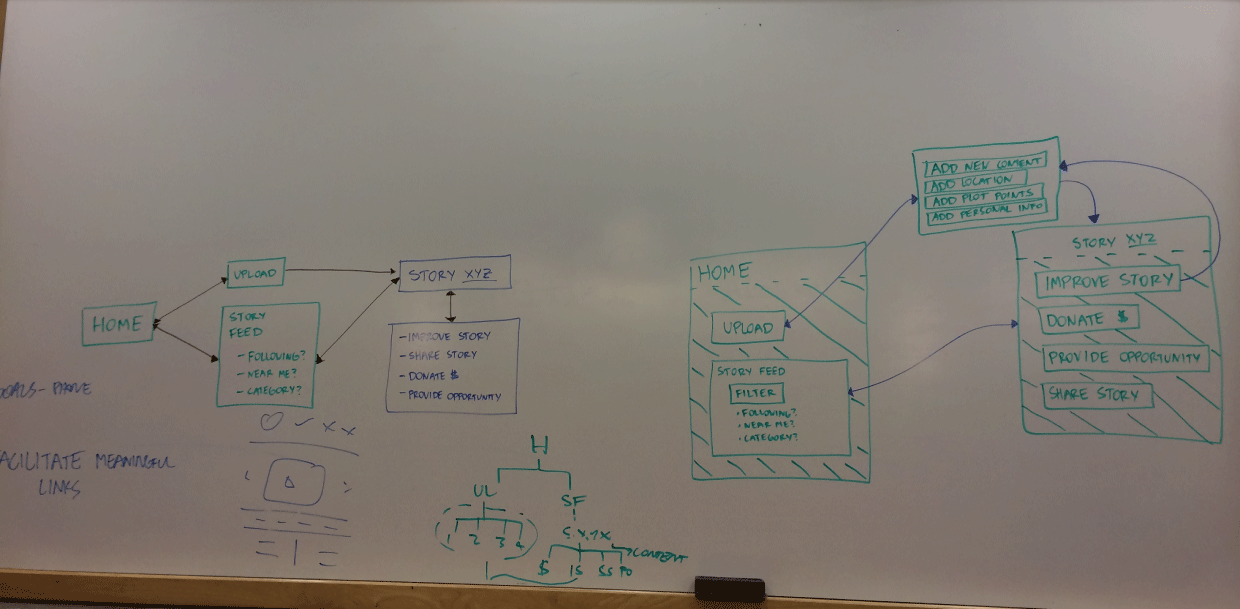 HOME
UPLOAD
STORY
FEED
- FOLLOWING?
- NEAR ME?
- CATEGORY?
STORY XYZ
- IMPROVE STORY
- SHARE STORY
- DONATE $
- PROVIDE OPPORTUNITY
ACILITATE MEANINGFUL
LINKS
H
UL
SF
1 2 3 4
CONTENT
$ IS SS PO
HOME
UPLOAD
STORY FEED
FILTER
• FOLLOWING?
• NEAR ME?
• CATEGORY?
ADD NEW CONTENT
ADD LOCATION
ADD PLOT POINTS
ADD PERSONAL INFO
STORY XYZ
IMPROVE STORY
DONATE $
PROVIDE OPPORTUNITY
SHARE STORY